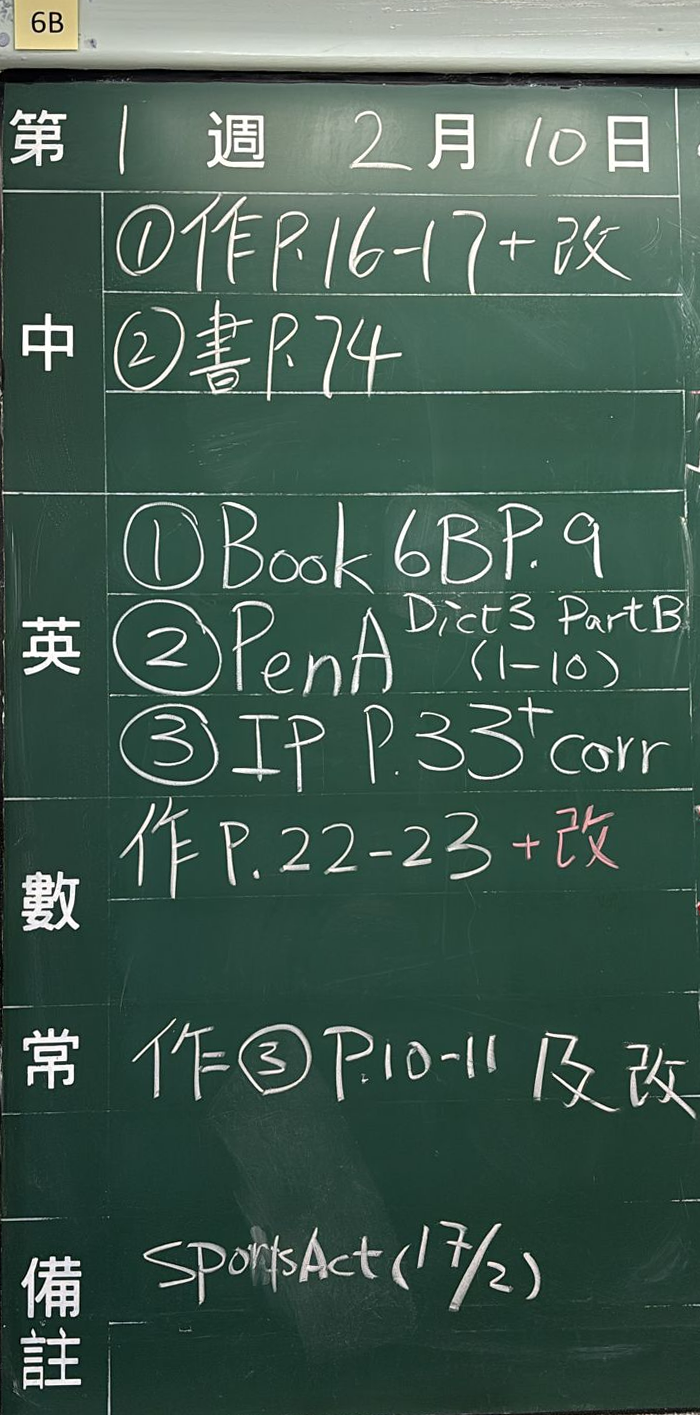 6B
第 1 週 2 月 10 日
中
①作P.16-17+改
②書P.74
英
①Book 6B P.9
②PenA Dict3 PartB (1-10)
③IP P.33+corr
數
作P.22-23+改
常
作③P.10-11及改
備註
SportsAct(17/2)